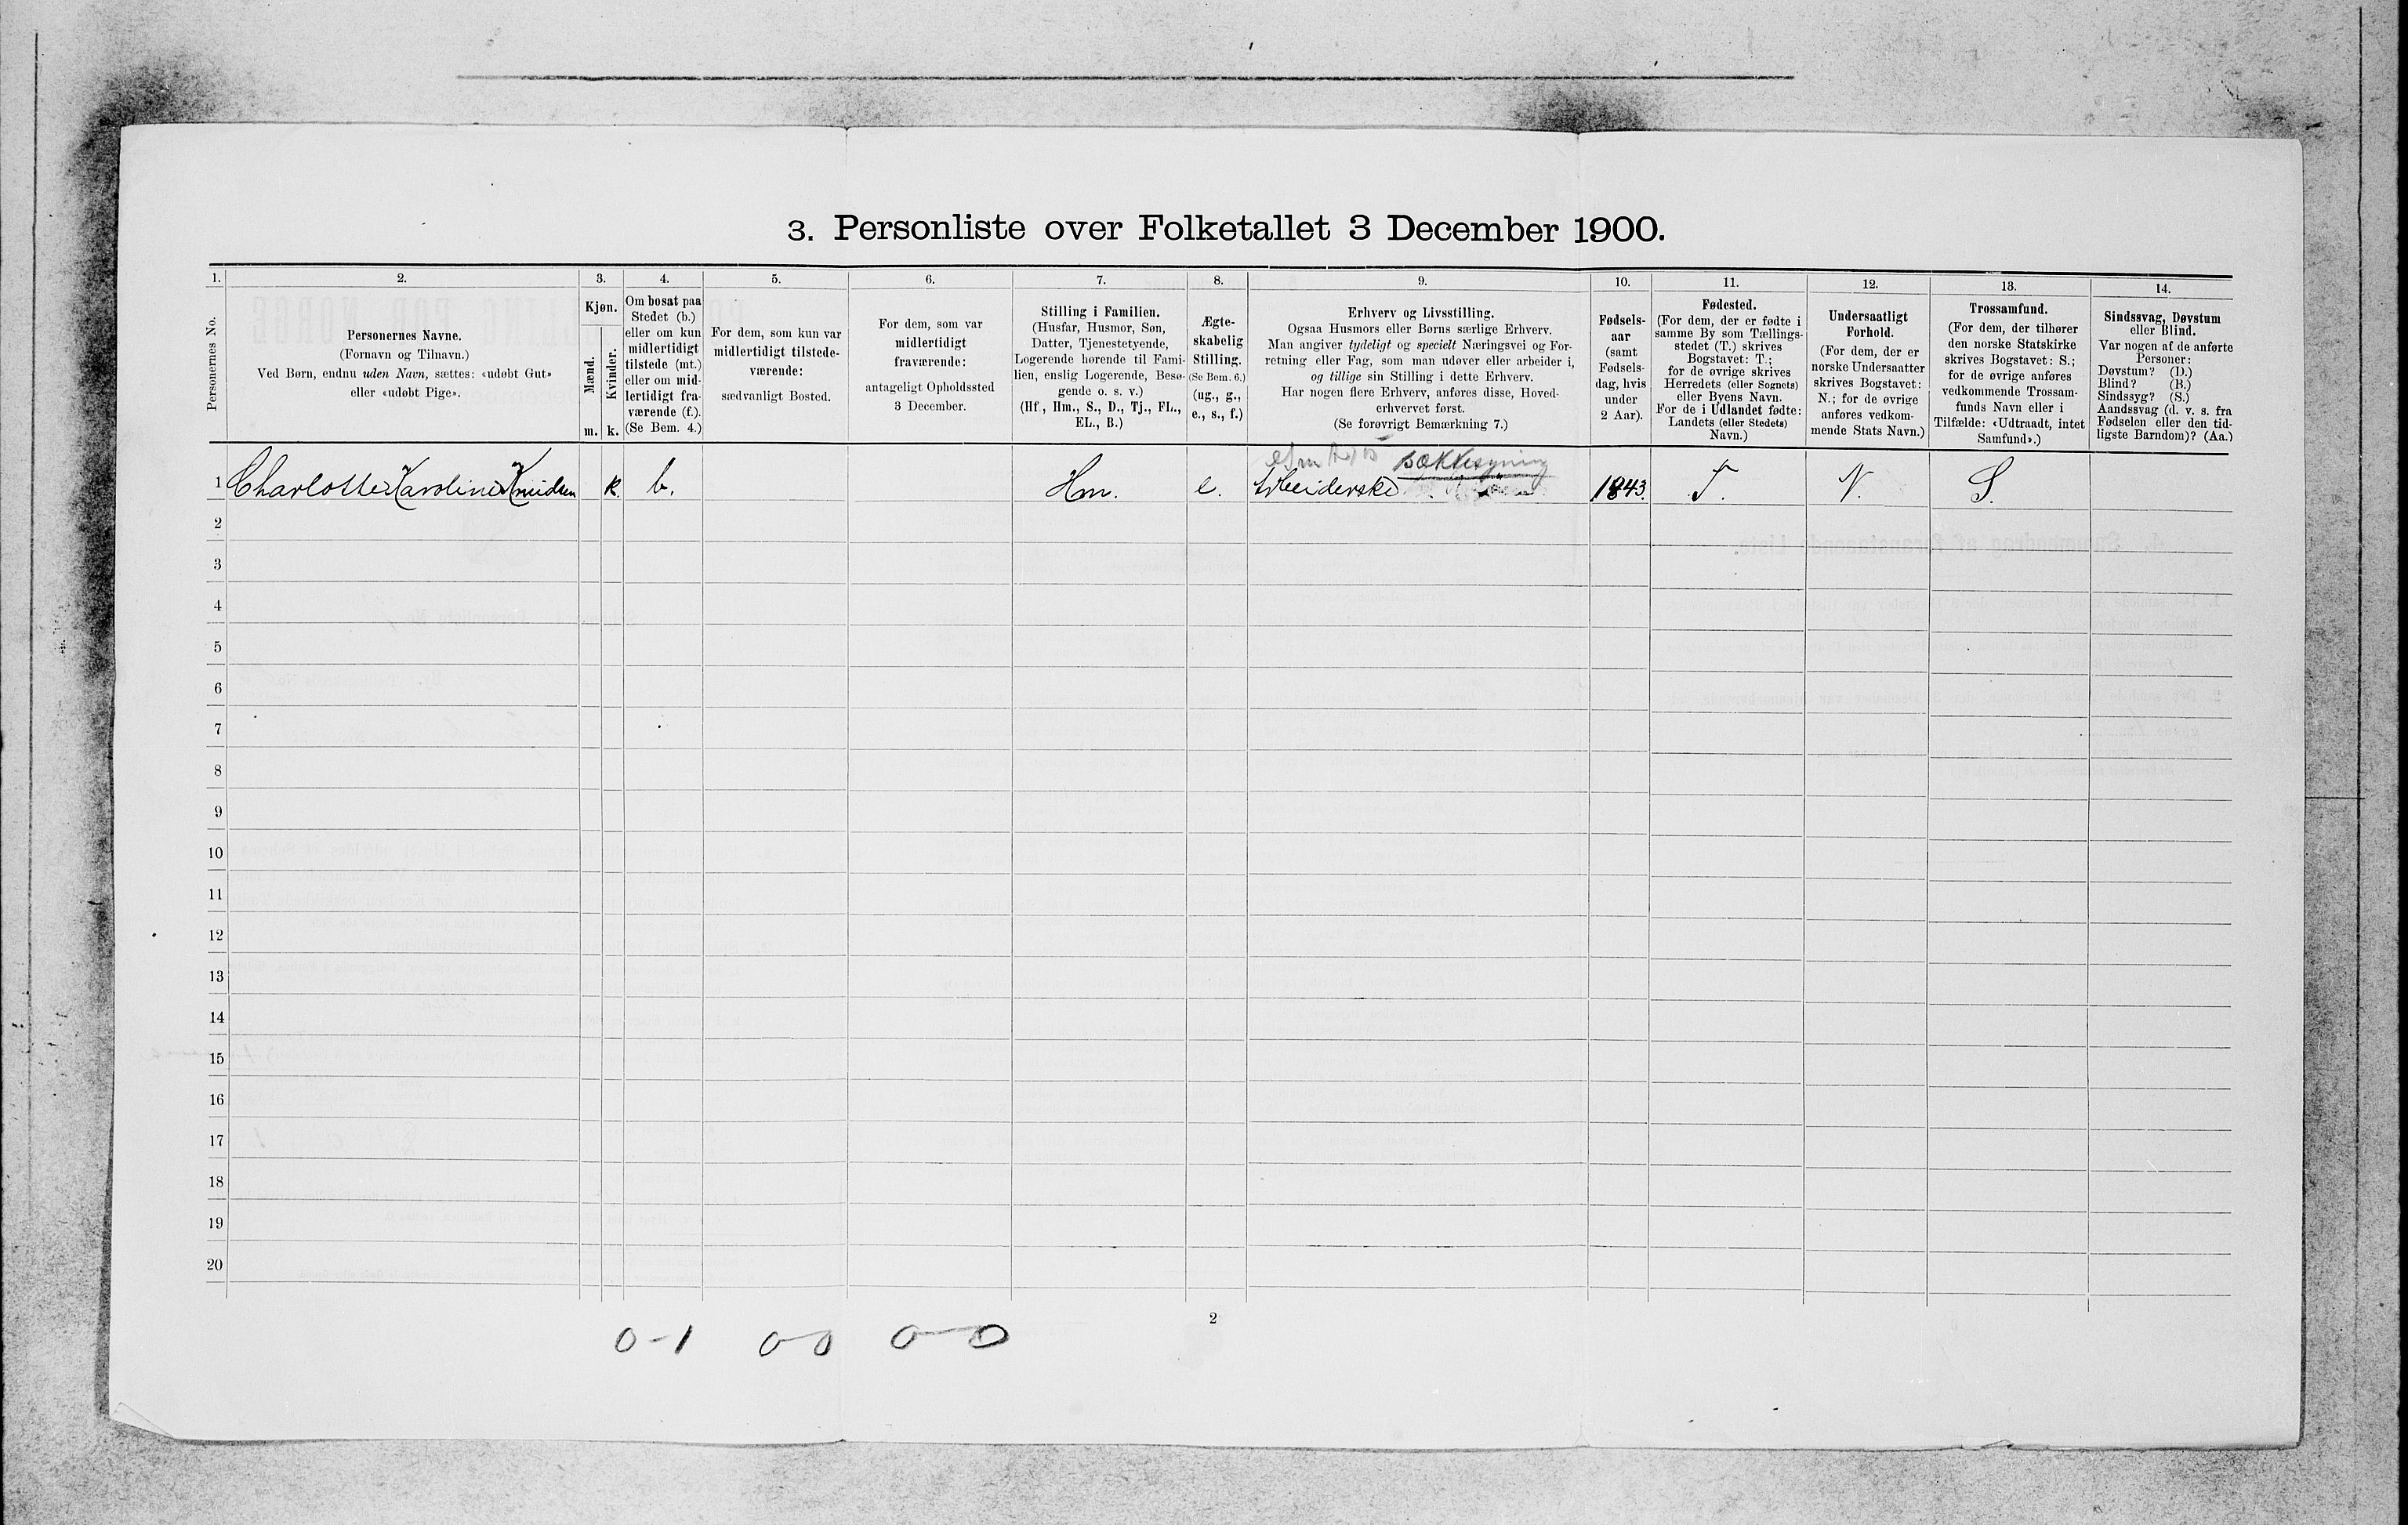 3. Personliste over Folketallet 3 December 1900.
1. 2. 3. 4. 5. 6. 7. 8. 9. 10. 11. 12. 13. 14.
Personernes No.
Personernes Navne.
(Fornavn og Tilnavn.)
Ved Børn, endnu uden Navn, sættes: «udøbt Gut»
eller «udøbt Pige».
Kjøn.
Mænd.
Kvinder.
m. k.
Om bosat paa
Stedet (b.)
eller om kun
midlertidigt
tilstede (mt.)
eller om mid-
lertidigt fra-
værende (f.).
(Se Bem. 4.)
For dem, som kun var
midlertidigt tilstede-
værende:
sædvanligt Bosted.
For dem, som var
midlertidigt
fraværende:
antageligt Opholdssted
3 December.
Stilling i Familien.
(Husfar, Husmor, Søn,
Datter, Tjenestetyende,
Logerende hørende til Fami-
lien, enslig Logerende, Besø-
gende o. s. v.)
(Hf., Hm., S., D., Tj., FL.,
EL., B.)
Ægte-
skabelig
Stilling.
(Se Bem. 6.)
(ug., g.,
e., s., f.)
Erhverv og Livsstilling.
Ogsaa Husmors eller Børns særlige Erhverv.
Man angiver tydeligt og specielt Næringsvei og For-
retning eller Fag, som man udøver eller arbeider i,
og tillige sin Stilling i dette Erhverv.
Har nogen flere Erhverv, anføres disse, Hoved-
erhvervet først.
(Se forøvrigt Bemærkning 7.)
Fødsels-
aar
(samt
Fødsels-
dag, hvis
under
2 Aar).
Fødested.
(For dem, der er fødte i
samme By som Tællings-
stedet (T.) skrives
Bogstavet: T.;
for de øvrige skrives
Herredets (eller Sognets)
eller Byens Navn.
For de i Udlandet fødte:
Landets (eller Stedets)
Navn.)
Undersaatligt
Forhold.
(For dem, der er
norske Undersaatter
skrives Bogstavet:
N.; for de øvrige
anføres vedkom-
mende Stats Navn.)
Trossamfund.
(For dem, der tilhører
den norske Statskirke
skrives Bogstavet: S.;
for de øvrige anføres
vedkommende Trossam-
funds Navn eller i
Tilfælde: «Udtraadt, intet
Samfund».)
Sindssvag, Døvstum
eller Blind.
Var nogen af de anførte
Personer:
Døvstum? (D.)
Blind? (B.)
Sindssyg? (S.)
Aandssvag (d. v. s. fra
Fødselen eller den tid-
ligste Barndom)? (Aa.)
Sækkesyning
1 Charlotte Karoline Knudsen k. b. Hm. e. Arbeiderske 1843. T. N. S.
2
3
4
5
6
7
8
9
10
11
12
13
14
15
16
17
18
19
20
2
0-1 0-0 0-0